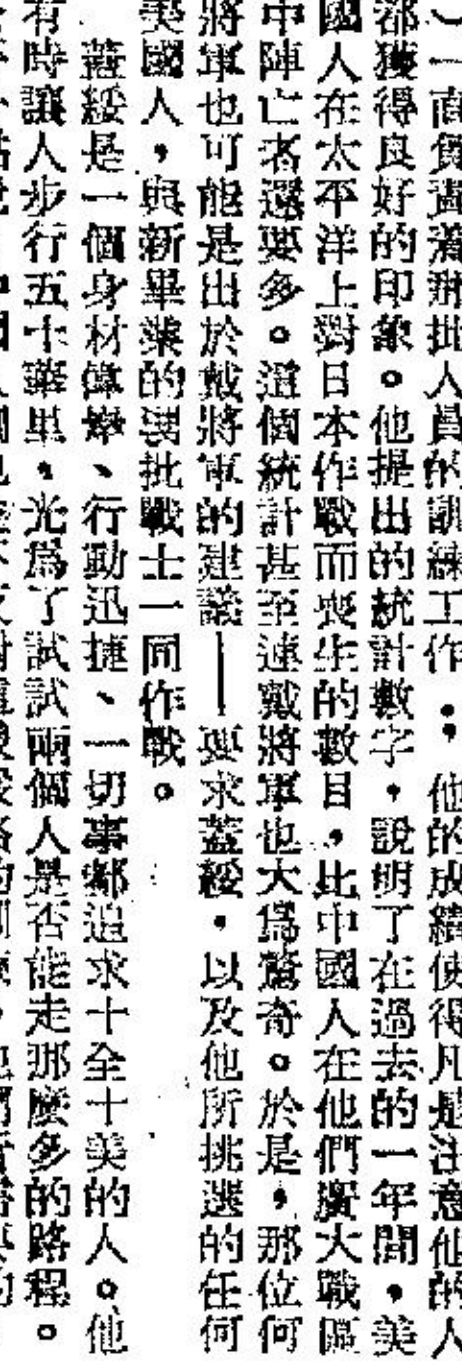 ）一面負責蕭那批人員的訓練工作。：他的成績使得凡是注意他的人
都獲得良好的印象。他提出的統計數字，說明了在過去的一年間，美
國人在太平洋上對日本作戰而喪生的數目，比中國人在他們廣大戰區
中陣亡者還要多。這個統計甚至連戴將軍也大爲驚奇。於是，那位何
將軍也可能是出於戴將軍的建議——要求蓋綏，以及他所挑選的任何
美國人，與新畢業的那批戰士一同作戰。
蓋綏是一個身材偉岸、行動迅捷、一切事都追求十全十美的人。他
有時讓人步行五十華里，光爲了試試兩個人是否能走那麼多的路程。